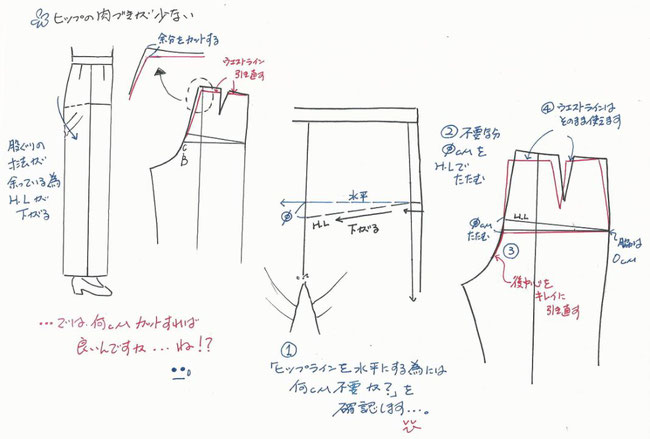 ヒップの肉づきが少ない
余分をカットする
ウエストライン
引き直す
股ぐりの
寸法が
余っている為
H.Lが
下がる
C
B
…では、何cmカットすれば
良いんですか…ね!?
水平
H.L
下がる
①
「ヒップラインを水平にする為には
何cm不要か?」を
確認します…。
② 不要な分
φcmを
H.Lで
たたむ
④ ウエストラインは
そのまま使えます
H.L
φcm
たたむ
③
脇は
0cm
後中心を
キレイに
引き直す